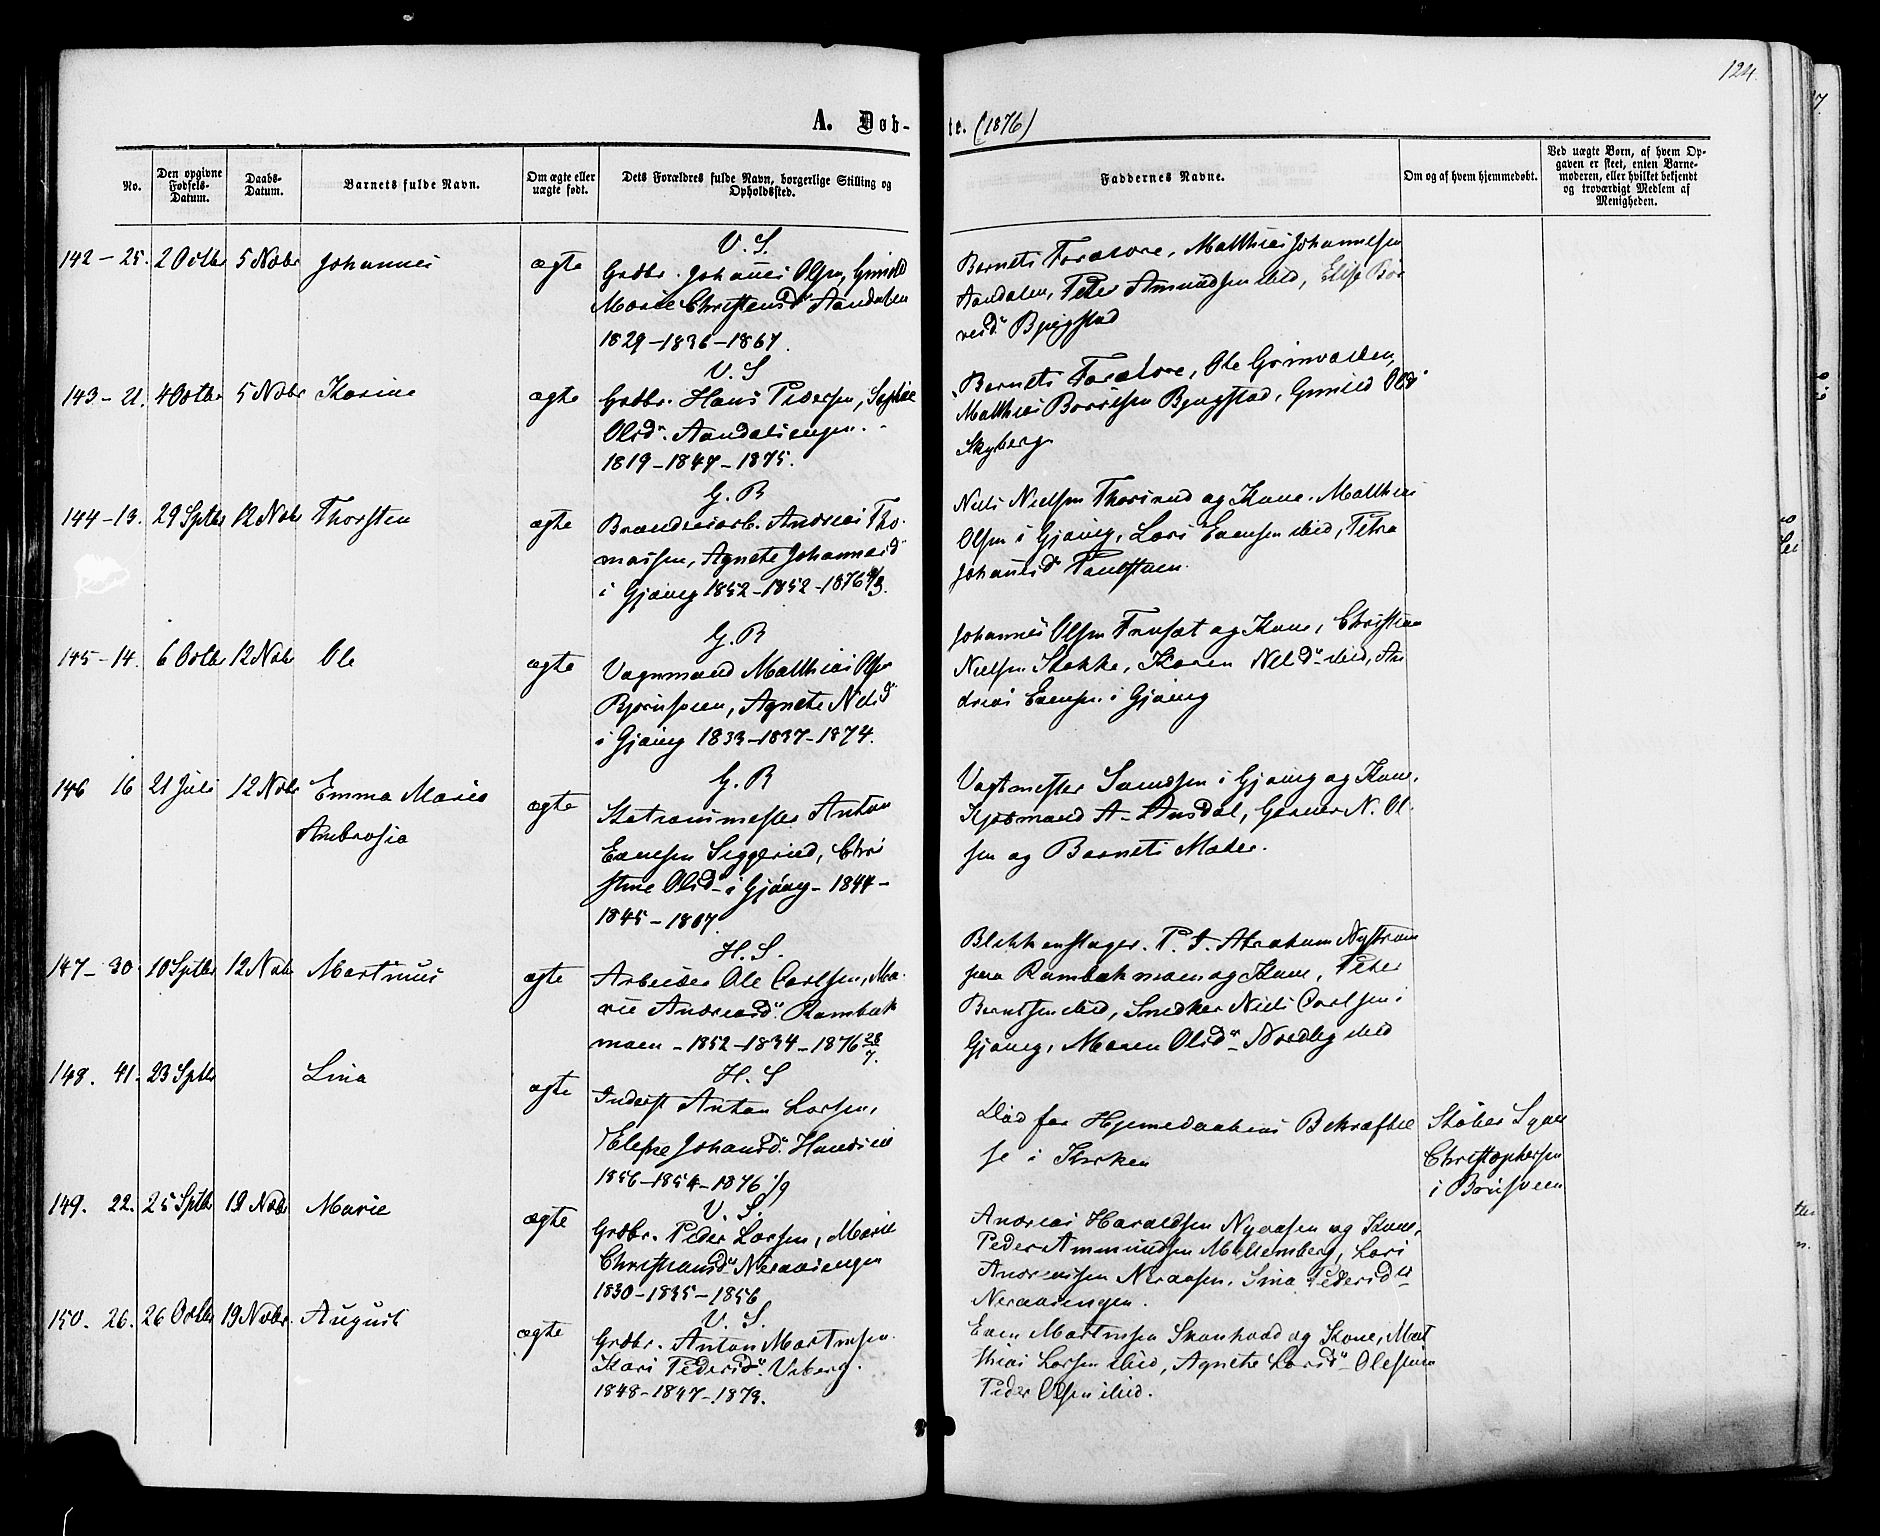 124.
A. Døb-
te. (1876)
No.
Den opgivne Fødsels-Datum.
Daabs-Datum.
Barnets fulde Navn.
Om ægte eller uægte født.
Dets Forældres fulde Navn, borgerlige Stilling og Opholdssted.
Faddernes Navne.
Om og af hvem hjemmedøbt.
Ved uægte Børn, af hvem Op-
gaven er skeet, enten Barne-
moderen, eller hvilket bekjendt
og troværdigt Medlem af
Menigheden.
142 - 25. 2 Octbr 5 Nobr Johannes ægte
V. S.
Grdbr. Johannes Olsen, Gunild
Marie Christensd" Aandalen
1829 - 1836 - 1867.
Barnets Forældre, Matthias Johannesen
Aandalen, Peder Amundsen ibid, Elise Bør
resd" Bjugstad
143 - 21. 4 Octbr 5 Nobr Karine ægte
V. S
Grdbr. Hans Pedersen, Sophie
Olsd". Aandalsengen.
1819 - 1847 - 1875.
Barnets Forældre, Ole
Matthias Børresen Bjugstad, Gunild Olsd"
Skyberg
144 - 13. 29 Sptbr 12 Nobr Thorsten ægte
G. B
Brænderiarb. Andreas Tho-
massen, Agnete Johannesd"
i Gjøvig 1852 - 1852 - 1876
Niels Nielsen Thorsrud og Kone. Matthias
Olsen i Gjøvig, Lars Evensen ibid, Petra
Johannesd"
145 - 14. 6 Octbr 12 Nobr Ole ægte
G. B
Vognmand Matthias Olsen
Bjørnsveen, Agnete Nilsd"
i Gjøvig 1833 - 1837 - 1874.
Johannes Olsen og Kone, Christian
Nielsen Stokke, Karen Nilsd" ibid, An
dreas Evensen i Gjøvig
146 16 21 Juli 12 Nobr Emma Marie
Ambrosia ægte
G. B
Anton
Evensen Siggerud, Chri
stine Olsd" i Gjøvig - 1844 -
1845 - 1867.
Vagtmester i Gjøvig og Kone,
Kjøbmand A. Ansdal, Garver N. Ol-
sen og Barnets Moder.
147 - 30 10 Sptbr 12 Nobr Martinus ægte
H. S.
Arbeider Ole Carlsen, Ma-
rie Andreasd". Rambæk
moen - 1852 - 1834 - 1876 28/7.
Blikkenslager. P. A. Abraham Nystrøm
paa Rambækmoen og Kone, Peter
Berntsen ibid, Snedker Niels Carlsen i
Gjøvig, Maren Olsd" - Nordby ibid
148. 41. 23 Sptbr Lina ægte
H. S
Inderst Anton Larsen,
Johansd".
1856 - 1854 - 1876 1/9
Død før Hjemmedaabens Bekræftel
se i Kirken
Støber Syver
Christophersen
i Bruflveen
149. 22. 25 Sptbr 19 Nobr Marie ægte
V. S.
Grdbr. Peder Larsen, Marie
Christiansd" Neraasengen
1830 - 1835 - 1856
Andreas Haraldsen Nyaasen og Kone,
Peder Ammundsen Mellemberg, Lars
Andreassen Neraasen, Lina Pedersd"
Neraasengen.
150. 26. 26 Octbr 19 Nobr. August ægte
V. S.
Grdbr. Anton Martinsen.
Kari Pedersd". Viberg.
1848 - 1847 - 1873.
Even Martinsen Skonhovd og Kone, Mat
thias Larsen ibid, Agnete Larsd" Olestuen
Peder Olsen ibid.